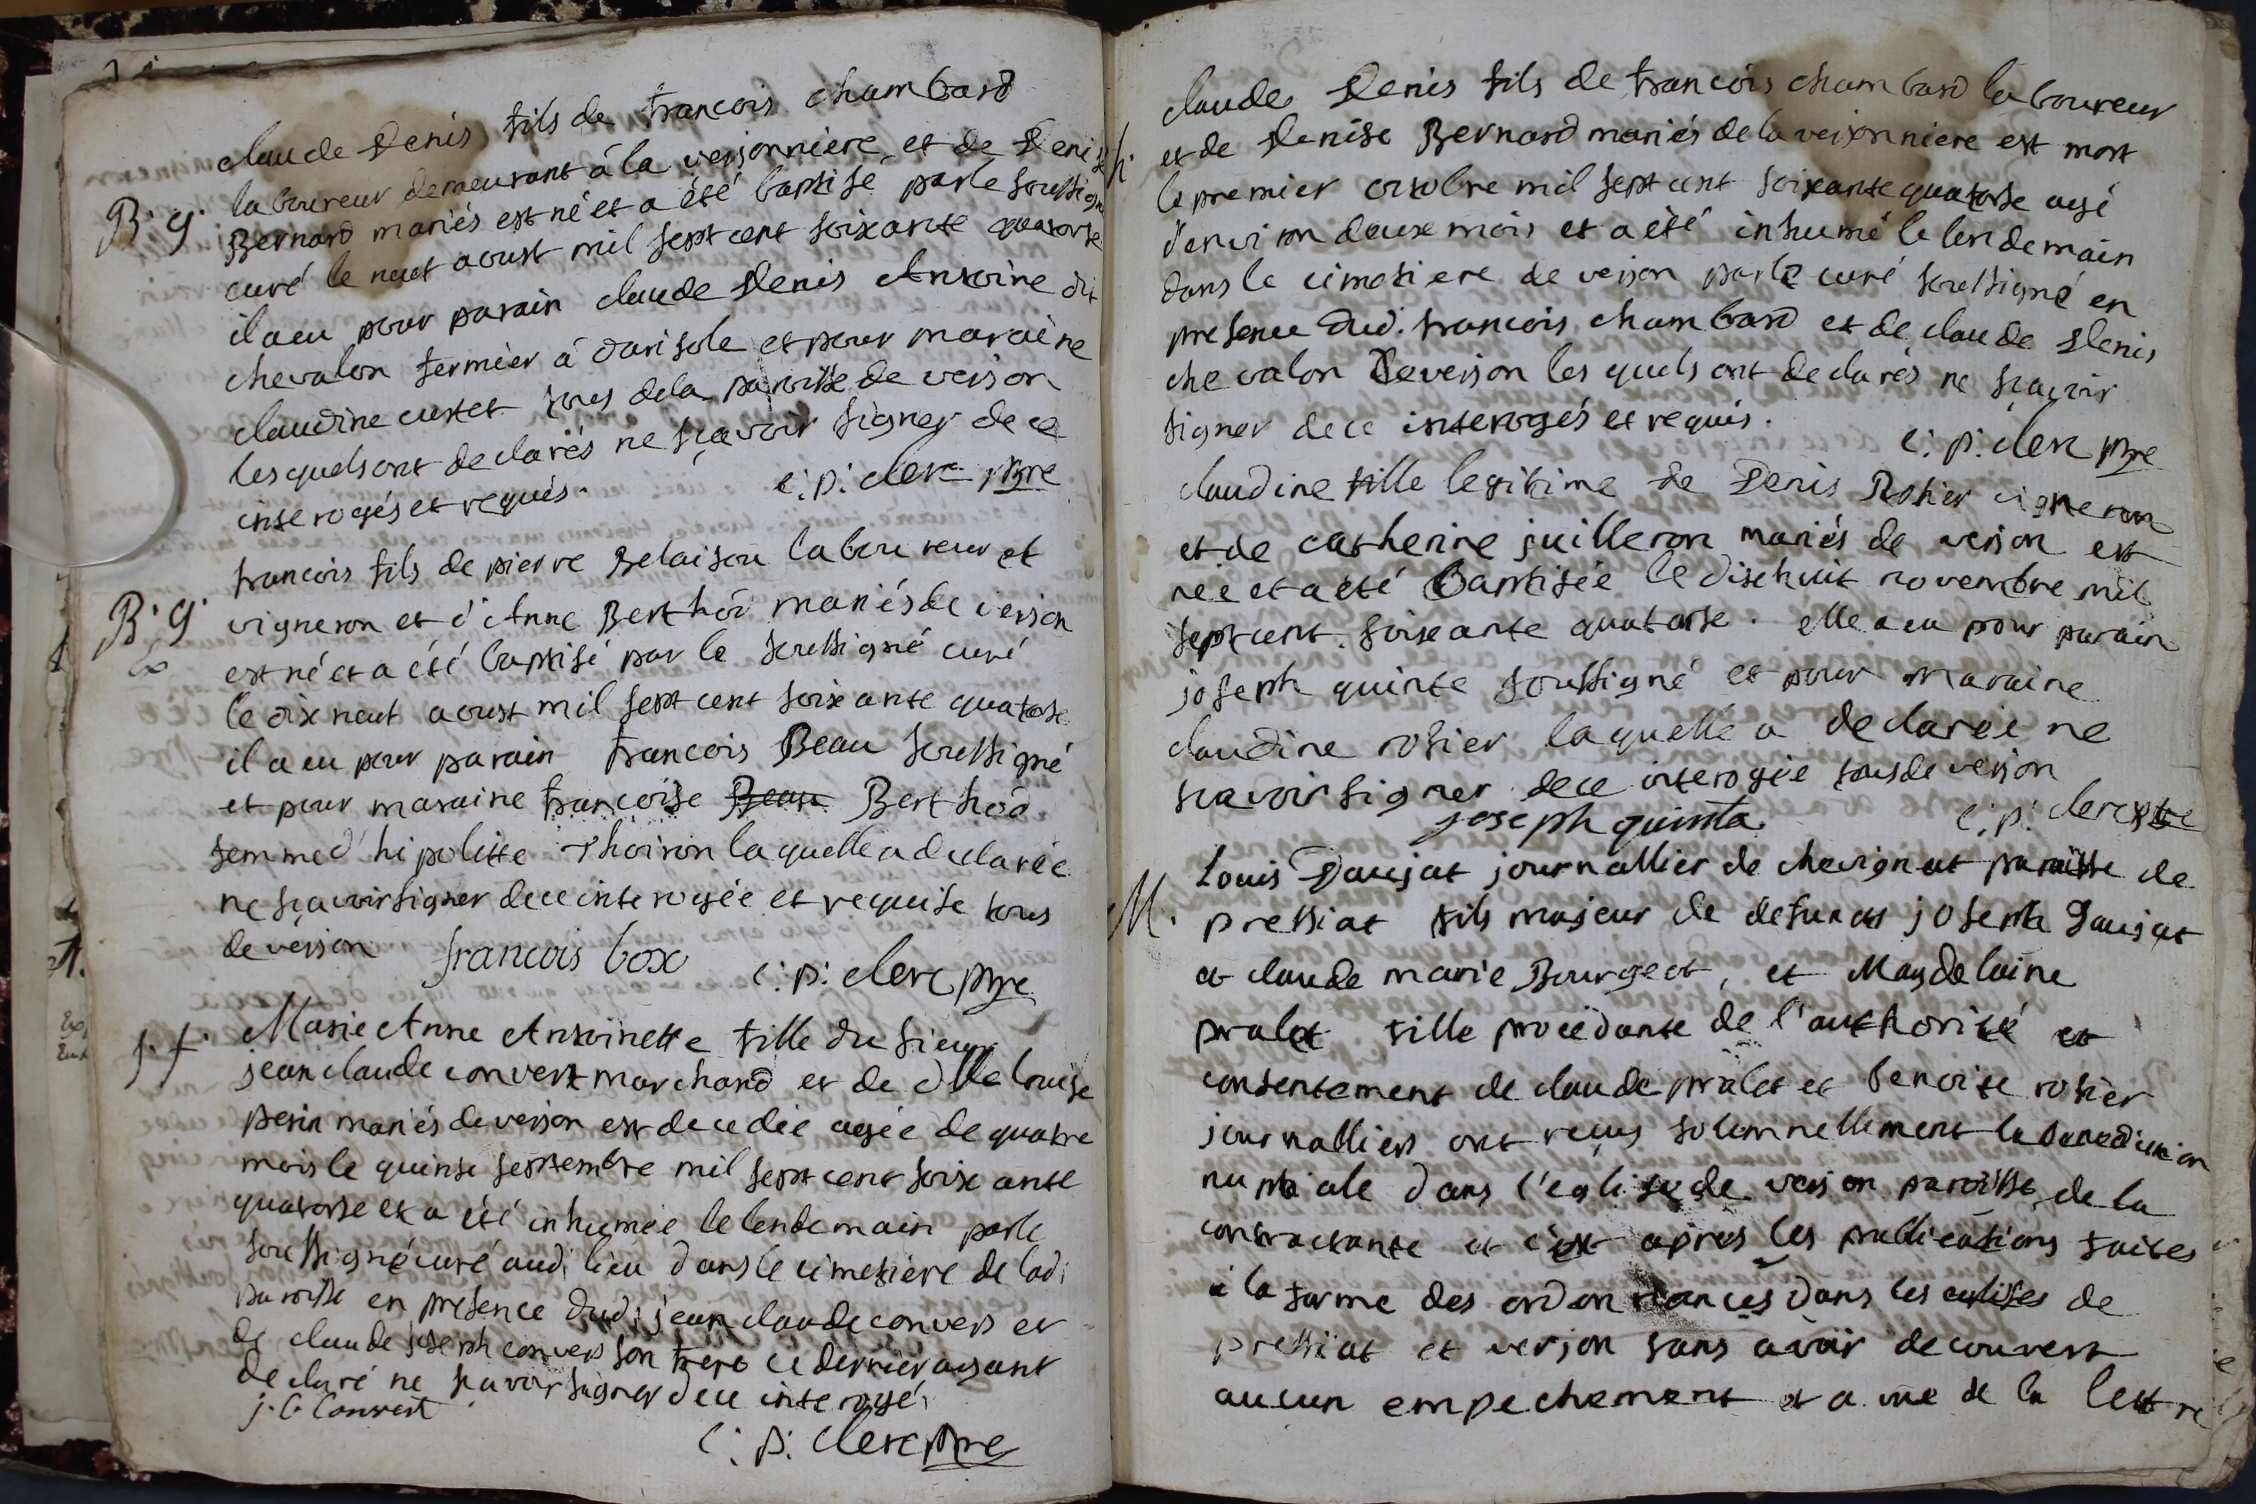 claude Denis fils de francois chambard
laboureur demeurant à la verjonniere et de Denise
B. g. Bernard mariés est né et a été baptisé par le soussigné
curé le neuf aoust mil sept cent soixante quatorse
il a eu pour parain claude Denis Antoine dit
chevalon fermier à darisole et pour maraine
claudine curtet tous de la paroisse de verjon
lesquels ont declarés ne sçavoir signer de ce
interogés et requis. c: p: clerc ptre
francois fils de pierre Belaisou laboureur et
B. g. vigneron et d'Anne Berthod mariés de verjon
est né et a été baptisé par le soussigné curé
le dix neuf aoust mil sept cent soixante quatorse
il a eu pour parain francois Beau soussigné
et pour maraine francoise Beau Berthod
femme d'hipolitte Thoiron laquelle a declarée
ne sçavoir signer de ce interogée et requise tous
de verjon francois box c: p: clerc ptre
j. f. Marie Anne Antoinette fille du sieur
jean claude convert marchand et de dlle louise
perin mariés de verjon est decedée agée de quatre
mois le quinse septembre mil sept cent soixante
quatorse et a été inhumée le lendemain par le
soussigné curé aud: lieu dans le cimetiere de lad:
paroisse en presence dud: jean claude convers et
de claude joseph convers son frere ce dernier ayant
declaré ne scavoir signer de ce interogé.
j. C Convert
c: p: clerc ptre
claude Denis fils de francois chambard laboureur
h. et de Denise Bernard mariés de la verjonniere est mort
le premier octobre mil sept cent soixante quatorse agé
d'environ deux mois et a été inhumé le lendemain
dans le cimetiere de verjon par le curé soussigné en
presence dud. francois chambard et de claude Denis
chevalon de verjon les quels ont declarés ne sçavoir
signer de ce interogés et requis.
c: p: clerc ptre
claudine fille legitime de Denis Rosier vigneron
et de catherine juilleron mariés de verjon est
née et a été Baptisée le dixhuit novembre mil
sept cent soixante quatorse. elle a eu pour parain
joseph quinte soussigné et pour maraine
claudine rosier laquelle a declarée ne
scavoir signer de ce interogée tous de verjon
joseph quinta c: p: clerc ptre
Louis Daujat journallier de chevignat paroisse de
M. pressiat fils majeur de defunts joseph Daujat
et claude marie Bourgeot, et Magdelaine
pralet fille procedante de l'authorité et
consentement de claude pralet et benoite rosier
journalliers ont reçus solemnellement la benediction
nuptiale dans l'eglise de verjon paroisse de la
contractante et c'est apres les publications faites
à la forme des ordonnances dans les eglises de
pressiat et verjon sans avoir decouvert
aucun empechement et a vue de la lettre